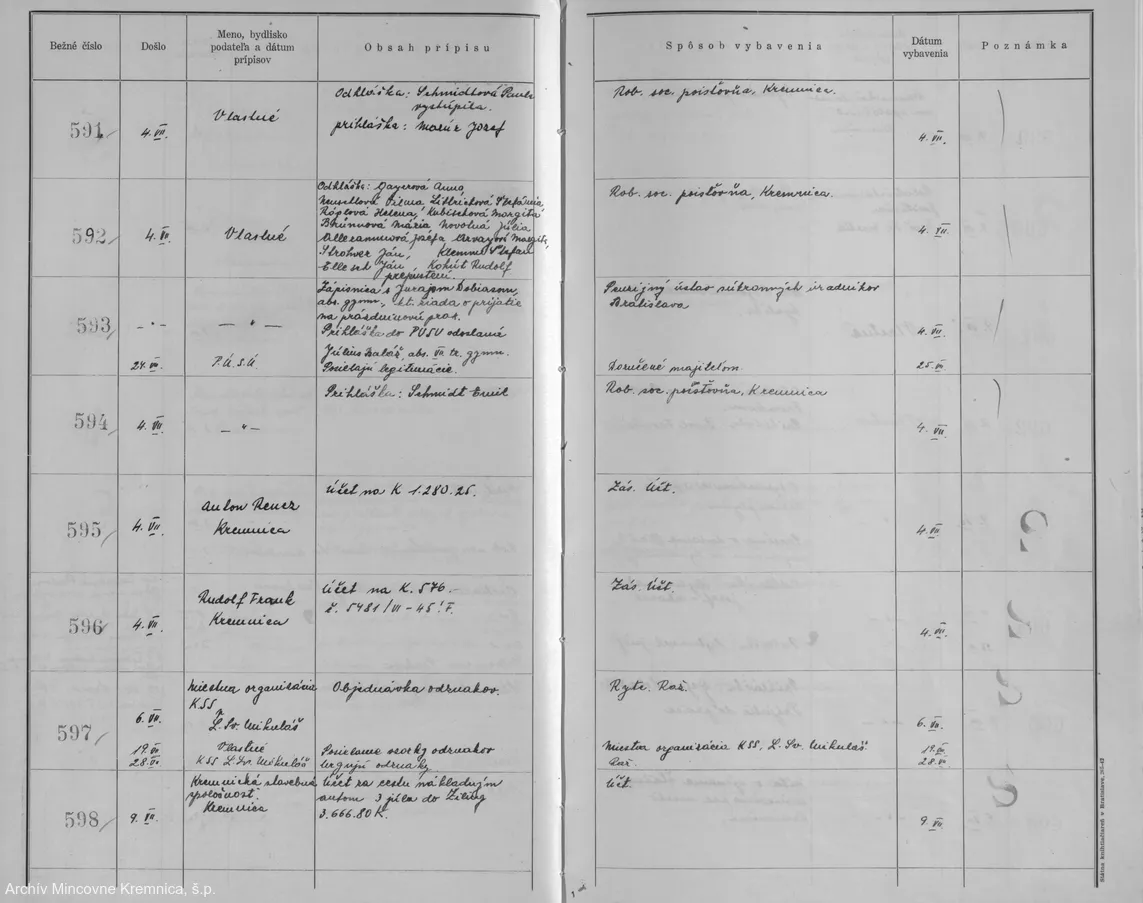 Bežné číslo
Došlo
Meno, bydlisko
podateľa a dátum
prípisov
Obsah prípisu
Spôsob vybavenia
Dátum
vybavenia
Poznámka
591/
4. VII.
Vlastné
Odhláška: Schmidtová Paula
vystúpila.
prihláška: Mazúr Jozef
Rob. soc. poisťovňa, Kremnica.
4. VII.
592/
4. VII.
Vlastné
Odhláška: Anna
Helena, Kubischová Margita
Mária Novotná Júlia
Jozefa Margita,
Ján, Štefan
Ján, Kohút Rudolf
prepustení.
Rob. soc. poisťovňa, Kremnica.
4. VII.
593/
— " —
— " —
Zápisnica s Jurajom Dobiasom,
abs. gymn., kt. žiada o prijatie
na prázdninovú prax.
Prihláška do PÚSÚ odoslaná
Penzijný ústav súkromných úradníkov
Bratislava
4. VII.
24. VII.
P.Ú.S.Ú.
Július Baláž, abs. VII. tr. gymn.
Posielajú legitimácie.
Doručené majiteľom
25. VII.
594/
4. VII.
— " —
Prihláška: Schmidt Emil
Rob. soc. poisťovňa, Kremnica
4. VII.
595/
4. VII.
Anton Rencz
Kremnica
Účet na K 1.280.25.
Zás. Účt.
4. VII.
596/
4. VII.
Rudolf Frank
Kremnica
Účet na K. 576.-
č. 5481/VI-45! F.
Zás. Účt.
4. VII.
597/
6. VII.
Miestna organizácia
KSS
L. Sv. Mikuláš
Objednávka odznakov.
Ryte. Raž.
6. VII.
19. VII.
Vlastné
Posielame vzorky odznakov
Miestna organizácia KSS, L. Sv. Mikuláš
19. VII.
28. VII.
KSS L. Sv. Mikuláš
Urgujú odznaky
Raž.
28. VII.
598/
9. VII.
Kremnická stavebná
spoločnosť.
Kremnica
Účet za cestu nákladným
autom 3 júla do Žiliny
3.666.80 K.
Účt.
9. VII.
Štátna kníhtlačiareň v Bratislave, 265-42
Archív Mincovne Kremnica, š.p.